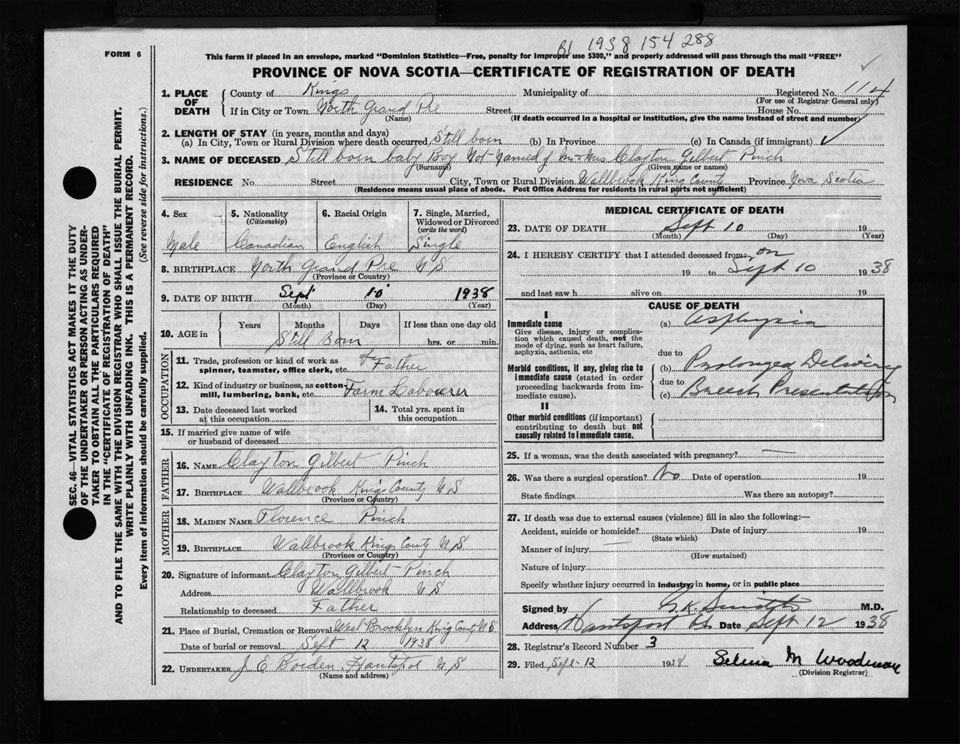 B1 1938 154 288
FORM 6
This form if placed in an envelope, marked "Dominion Statistics—Free, penalty for improper use $300," and properly addressed will pass through the mail "FREE"
PROVINCE OF NOVA SCOTIA—CERTIFICATE OF REGISTRATION OF DEATH
SEC. 46—VITAL STATISTICS ACT MAKES IT THE DUTY
OF THE UNDERTAKER OR PERSON ACTING AS UNDER-
TAKER TO OBTAIN ALL THE PARTICULARS REQUIRED
IN THE "CERTIFICATE OF REGISTRATION OF DEATH"
AND TO FILE THE SAME WITH THE DIVISION REGISTRAR WHO SHALL ISSUE THE BURIAL PERMIT.
WRITE PLAINLY WITH UNFADING INK. THIS IS A PERMANENT RECORD.
Every item of information should be carefully supplied. (See reverse side for instructions.)
1. PLACE OF DEATH County of Kings Municipality of Registered No. 114
(For use of Registrar General only)
If in City or Town North Grand Pre Street House No.
(Name) (If death occurred in a hospital or institution, give the name instead of street and number)
2. LENGTH OF STAY (in years, months and days)
(a) In City, Town or Rural Division where death occurred Still born (b) In Province (c) In Canada (if immigrant) ✓
3. NAME OF DECEASED Still born baby Boy Not Named of Mr & Mrs Clayton Gilbert Pinch
(Surname) (Given name or names)
RESIDENCE No. Street City, Town or Rural Division Wallbrook King County Province Nova Scotia
(Residence means usual place of abode. Post Office Address for residents in rural parts not sufficient)
4. Sex 5. Nationality 6. Racial Origin 7. Single, Married,
(Citizenship) Widowed or Divorced
(write the word)
Male Canadian English Single
8. BIRTHPLACE North Grand Pre N S
(Province or Country)
9. DATE OF BIRTH Sept 10 1938
(Month) (Day) (Year)
10. AGE in Years Months Days If less than one day old
Still Born hrs. or min.
OCCUPATION
11. Trade, profession or kind of work as Father
spinner, teamster, office clerk, etc.
12. Kind of industry or business, as cotton Farm Labourer
mill, lumbering, bank, etc.
13. Date deceased last worked 14. Total yrs. spent in
at this occupation this occupation
15. If married give name of wife
or husband of deceased
FATHER
16. NAME Clayton Gilbert Pinch
17. BIRTHPLACE Wallbrook King's County N S
(Province or Country)
MOTHER
18. MAIDEN NAME Florence Pinch
19. BIRTHPLACE Wallbrook King's County N S
(Province or Country)
20. Signature of informant Clayton Gilbert Pinch
Address Wallbrook N S
Relationship to deceased Father
21. Place of Burial, Cremation or Removal West Brooklyn King County N S
Date of burial or removal Sept 12 1938
22. UNDERTAKER J E Hantsport N S
(Name and address)
MEDICAL CERTIFICATE OF DEATH
23. DATE OF DEATH Sept 10 19
(Month) (Day) (Year)
24. I HEREBY CERTIFY that I attended deceased from on
19 to Sept 10 1938
and last saw h alive on 19
CAUSE OF DEATH
I
Immediate cause (a) Asphyxia
Give disease, injury or complica-
tion which caused death, not the
mode of dying, such as heart failure,
asphyxia, asthenia, etc due to
Morbid conditions, if any, giving rise to (b) Prolonged Delivery
immediate cause (stated in order due to
proceeding backwards from im- (c) Breech Presentation
mediate cause).
II
Other morbid conditions (if important)
contributing to death but not
causally related to immediate cause.
25. If a woman, was the death associated with pregnancy? —
26. Was there a surgical operation? No Date of operation 19
State findings Was there an autopsy?
27. If death was due to external causes (violence) fill in also the following:—
Accident, suicide or homicide? Date of injury 19
(State which)
Manner of injury —
(How sustained)
Nature of injury
Specify whether injury occurred in industry, in home, or in public place
Signed by Smith M.D.
Address Hantsport Date Sept 12 1938
28. Registrar's Record Number 3
29. Filed Sept 12 1938 Selina M Woodman
(Division Registrar)